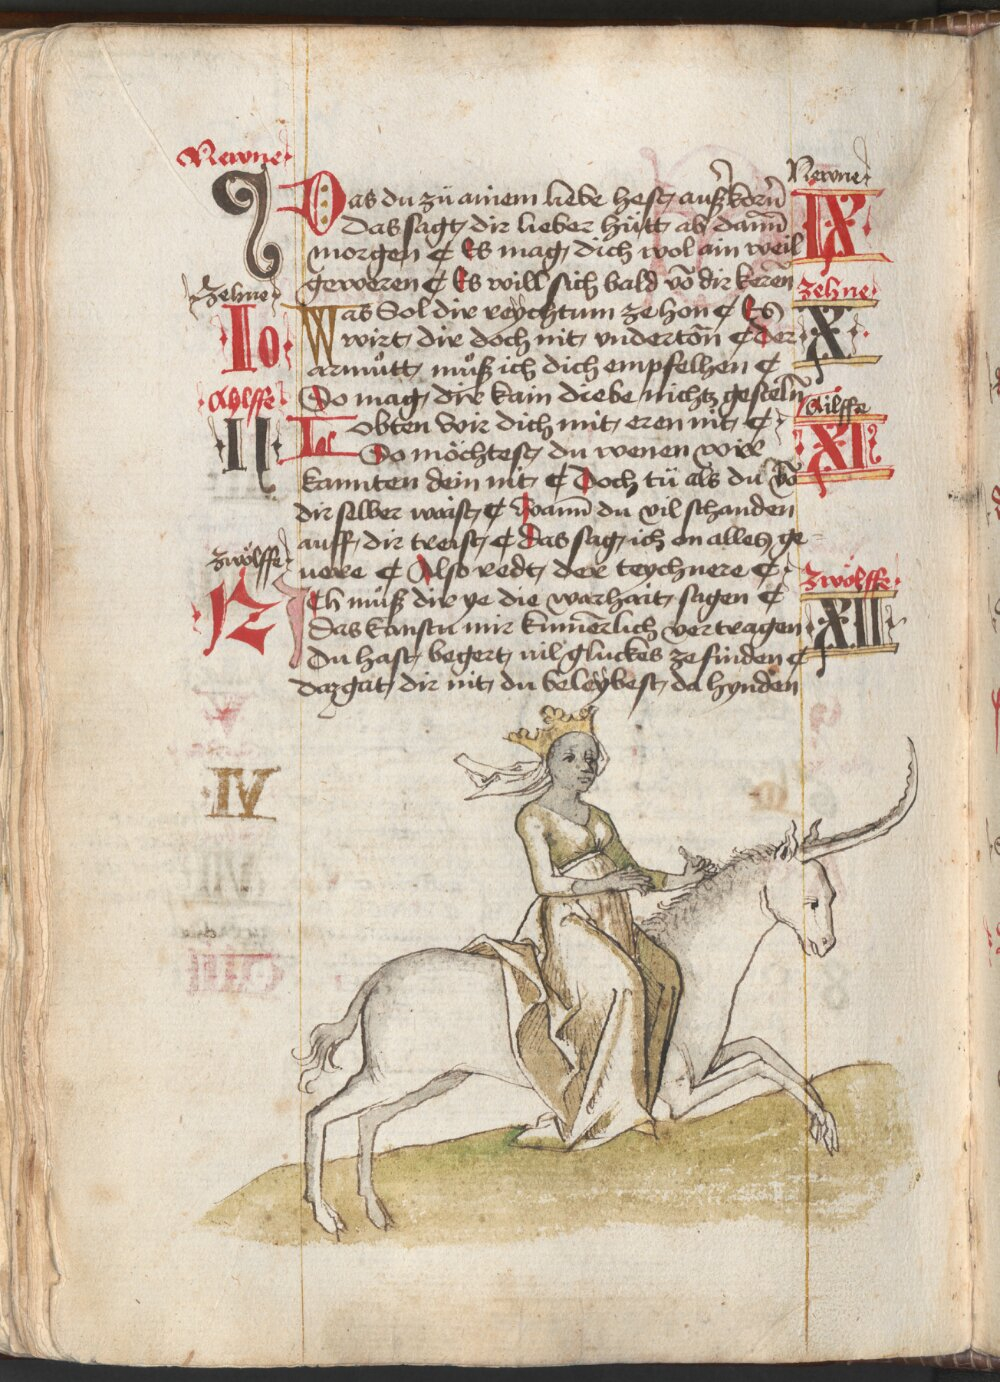 Newne
9
Das du zü ainem liebe hest außkorn̄
Newne
IX
Das sagt dir lieber hütt ab dann̄
morgen ¢ Es mag dich wol ain weil
geweren ¢ Es will sich bald vō dir keren
Zehne
10
Was Sol dir reÿchtum zehon ¢ Es
zehne
X
wirt dir doch nit vndertōn ¢ Der
armůtt můß ich dich empfelhen ¢
So mag dir kain diebe nichtz gesteln̄
Aÿlffe
11
Lobten wir dich mit eren nit ¢
Ailffe
XI
So möchtest du wenen wir
kannten dein nit ¢ Doch tü als du vō
dir selber waist ¢ Wann̄ du vil schanden
auff dir treist ¢ Das sag ich on alles ge=
uere ¢ Also redt der teychnere ¢
Zwölffe
12
Ich můß dir ye die warhait sagen ¢
Zwölffe
XII
Das kanstu mir kūmerlich vertragen
Du hast begert vil gluckes ze finden ¢
Daz gat dir nit du beleÿbest da hynden
IV